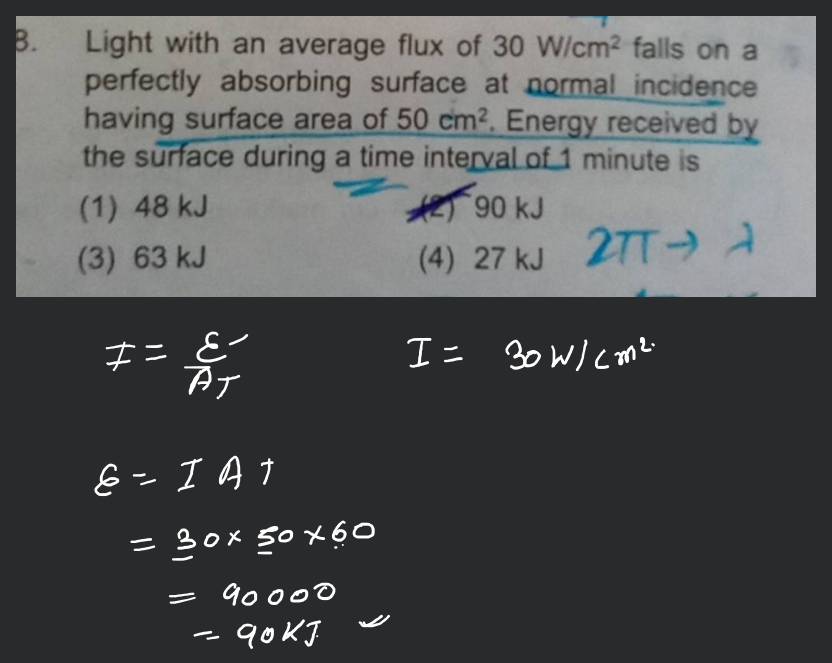 8. Light with an average flux of 30 W/cm² falls on a
perfectly absorbing surface at normal incidence
having surface area of 50 cm². Energy received by
the surface during a time interval of 1 minute is
(1) 48 kJ (2) 90 kJ
(3) 63 kJ (4) 27 kJ 2π → λ
I = E/AT I = 30 W/cm²
E = I A T
= 30 × 50 × 60
= 90000
= 90 KJ